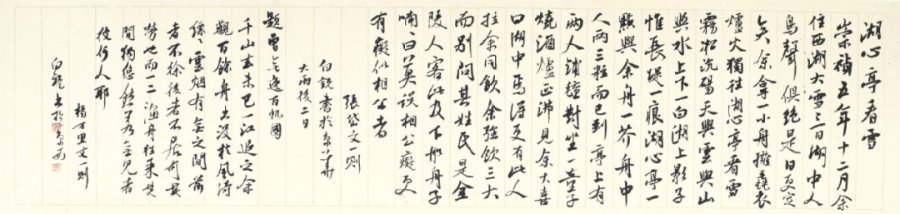 湖心亭看雪
崇禎五年十二月余
住西湖大雪三日湖中人
鳥聲俱絕是日更定
矣余拏一小舟擁毳衣
爐火獨往湖心亭看雪
霧淞沆碭天與雲與山
與水上下一白湖上影子
惟長堤一痕湖心亭一
點與余舟一芥舟中
人兩三粒而已到亭上有
兩人鋪氈對坐一童子
燒酒爐正沸見余大喜
曰湖中焉得更有此人
拉余同飲余強飲三大
而別問其姓氏是金
陵人客此及下船舟子
喃、曰莫說相公癡更
有癡似相公者
張岱文一則
大雨後二日
題曾無逸百帆圖
千山去未已一江追之余
觀百餘舟出沒於風濤
雲烟有無之間前
者不徐後者不居何其
勞也而一二漁舟往來其
間獨悠然若不見者
彼何人耶
楊萬里文一則